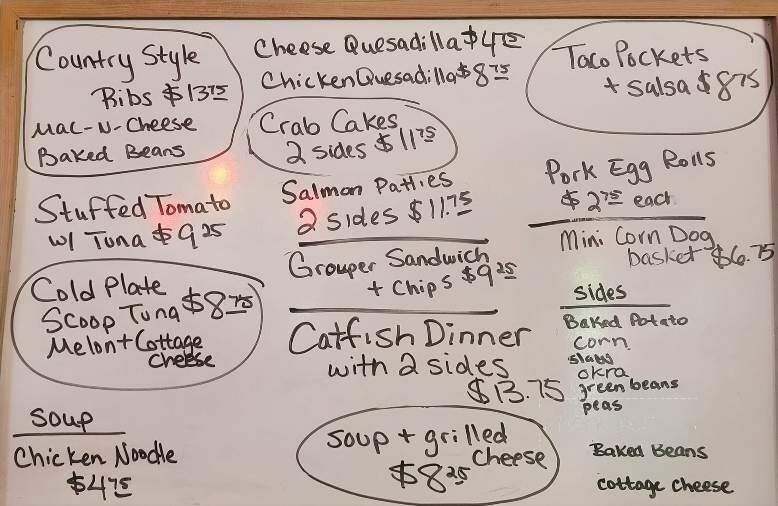 Country Style
Ribs $13.75
Mac-N-Cheese
Baked Beans
Stuffed Tomato
w/ Tuna $9.25
Cold Plate
Scoop Tuna $8.75
Melon + Cottage
Cheese
Soup
Chicken Noodle
$4.75
Cheese Quesadilla $4.75
Chicken Quesadilla $8.75
Crab Cakes
2 sides $11.75
Salmon Patties
2 sides $11.75
Grouper Sandwich
+ Chips $9.25
Catfish Dinner
with 2 sides
$13.75
Soup + grilled
cheese
$8.25
Taco Pockets
+ salsa $8.75
Pork Egg Rolls
$2.75 each
Mini Corn Dog
basket $6.75
Sides
Baked Potato
Corn
slaw
okra
green beans
peas
Baked Beans
Cottage Cheese